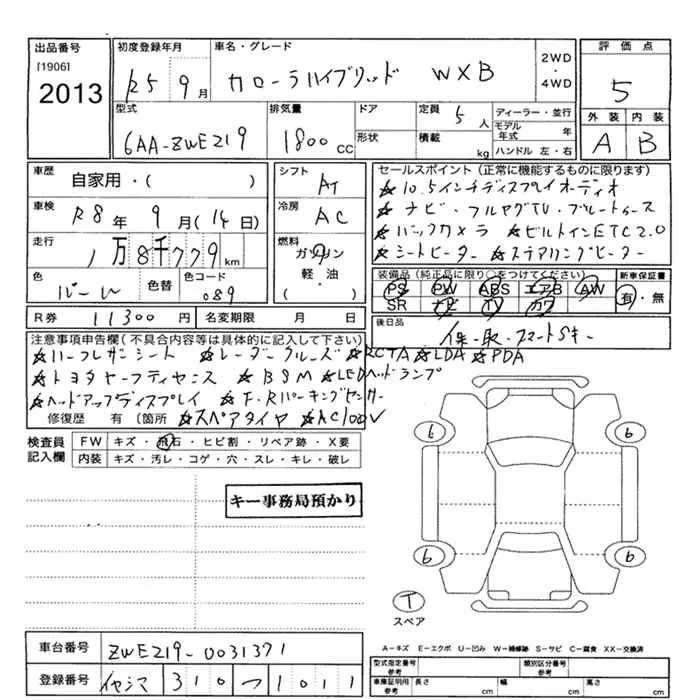 出品番号 初度登録年月 車名・グレード 2WD・4WD 評価点
[1906] 2013 R5 9月 カローラハイブリッド WXB 5
型式 排気量 ドア 定員 5人 ディーラー・並行 外装 内装
6AA-ZWE219 1800 CC 形状 積載 kg モデル年式 年 ハンドル 左・右 A B
車歴 自家用・( ) シフト AT セールスポイント(正常に機能するものに限ります)
☆10.5インチディスプレイオーディオ
車検 R8年 9月(14日) 冷房 AC ☆ナビ・フルセグTV・ブルートゥース
走行 1万8千779km 燃料 ガソリン 軽・油 ( ) ☆バックカメラ ☆ビルトインETC2.0
☆シートヒーター ☆ステアリングヒーター
色 パール 色替 色コード 089 装備品(純正品に限り○をつけてください) 新車保証書
PS PW ABS エアB AW 有・無
SR ナビ TV カワ
R券 11300円 名変期限 月 日 後日品 保・取・スマートSキー
注意事項申告欄(不具合内容等は具体的に記入して下さい)
☆ハーフレザーシート ☆レーダークルーズ ☆RCTA ☆LDA ☆PDA
☆トヨタセーフティセンス ☆BSM ☆LEDヘッドランプ
☆ヘッドアップディスプレイ ☆F・Rパーキングセンサー
修復歴 有 〔箇所 ☆スペアタイヤ ☆AC100V
検査員記入欄 FW キズ・飛石・ヒビ割・リペア跡・X要
内装 キズ・汚レ・コゲ・穴・スレ・キレ・破レ
キー事務局預かり
6 6
6 6
T
スペア
A-キズ E-エクボ U-凹み W-補修跡 S-サビ C-腐食 XX-交換済
車台番号 ZWE219-0031371
型式指定番号 参考 類別区分番号 参考
登録番号 310 つ 1011
車庫証明用 参考 長さ cm 幅 cm 高さ cm